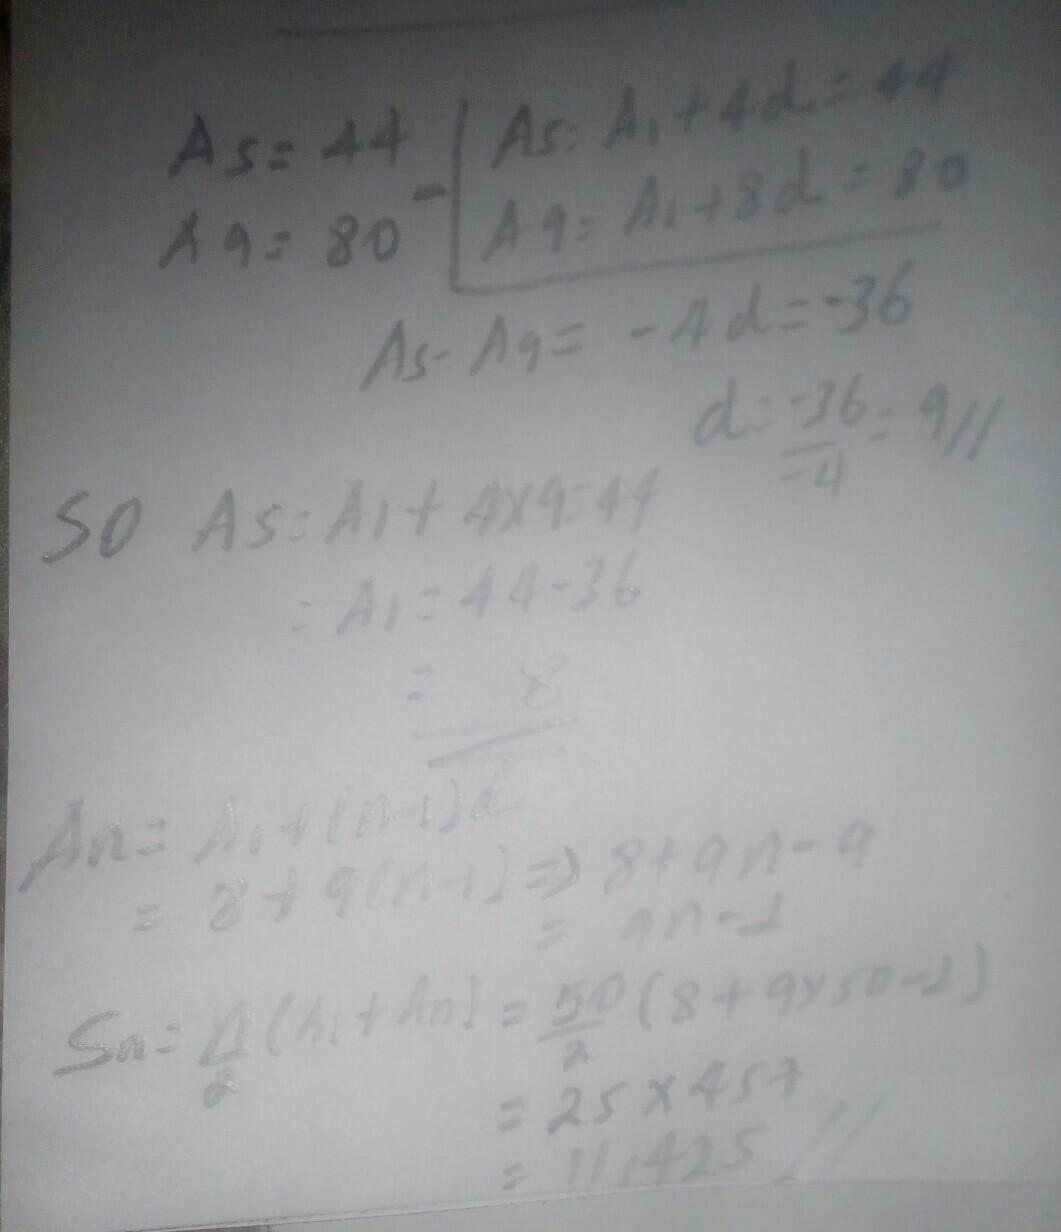 A5 = 44
A9 = 80
-
A5 = A1 + 4d = 44
A9 = A1 + 8d = 80
A5 - A9 = -4d = -36
d = -36/-4 = 9//
SO A5 = A1 + 4x9 = 44
= A1 = 44-36
= 8
An = A1 + (n-1)d
= 8 + 9(n-1) => 8+9n-9
= 9n-1
Sn = n/2 (A1 + An) = 50/2 (8+9x50-1)
= 25 x 457
= 11,425 //